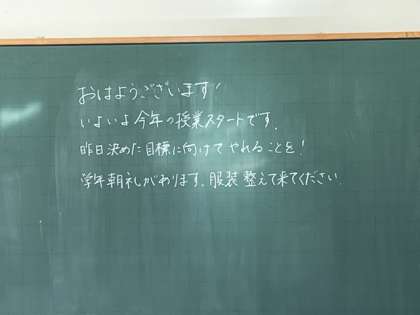 おはようございます!
いよいよ今年の授業スタートです。
昨日決めた目標に向けてやれることを!
学年朝礼があります。服装整えて来てください。